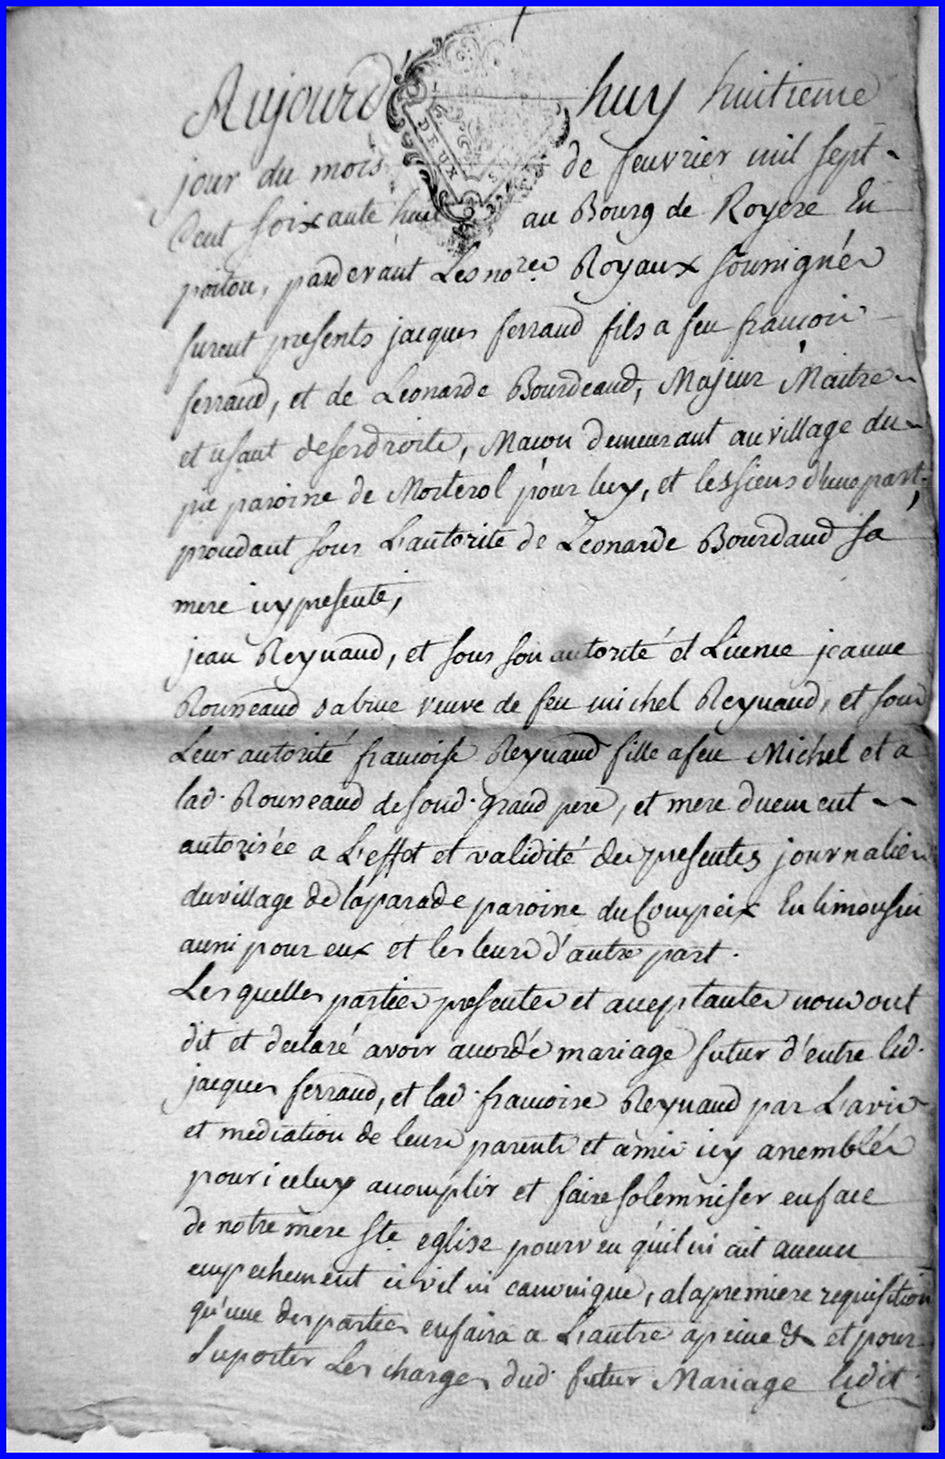 Aujourd huy huitieme
jour du mois de feuvrier mil sept
Cent soixante huit au Bourg de Royere En
poitou, pardevant Les no.res Royaux sousignés
furent presents jacques ferraud fils a feu francois
ferraud, et de Léonarde Bourdeaud, Majeur Maitre
et usant deses droits, Macon demeurant au village du
pié paroisse de Morterol pour luy, et les siens d'une part,
procedant sous L'autorité de Léonarde Bourdaud sa
mere icy presente,
jean Reynaud, et sous son autorité et Licence jeanne
Rouneaud sa brue veuve de feu michel Reynaud, et sous
Leur autorité francoise Reynaud fille a feu Michel et a
lad. Rouneaud de soud. grand pere, et mere duement
autorisée a L'effet et validité des presentes journaliers
du village de laparade paroisse du Compeix En limousin
aussi pour eux et les leurs d'autre part.
Les quelles parties presentes et acceptantes nous ont
dit et declaré avoir accordé mariage futur d'entre led.
jacques ferraud, et lad. francoise Reynaud par L'avis
et mediation de leurs parents et amis icy assemblés
pour iceluy accomplir et faire solemniser en face
de notre mere Ste eglise pourveu quil ni ait aucun
empechement civil ni canonique, a la premiere requisition
qu'une des parties en faira a L'autre a peine &c et pour
Suporter Les charges dud. futur Mariage ledit